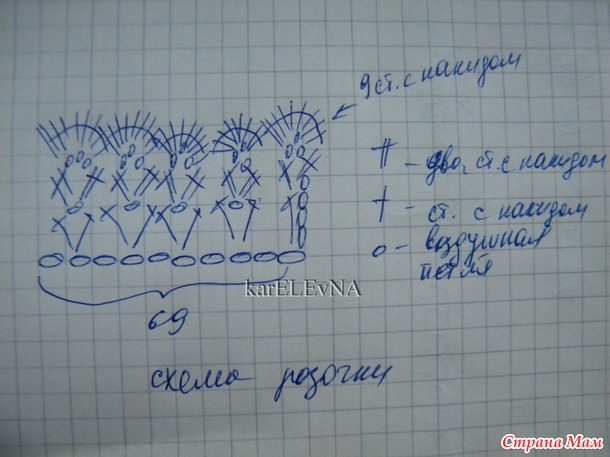 9 ст. с накидом
— два, ст. с накидом
— ст. с накидом
— воздушная
петля
karELEvNA
69
схема розочки
Страна Мам